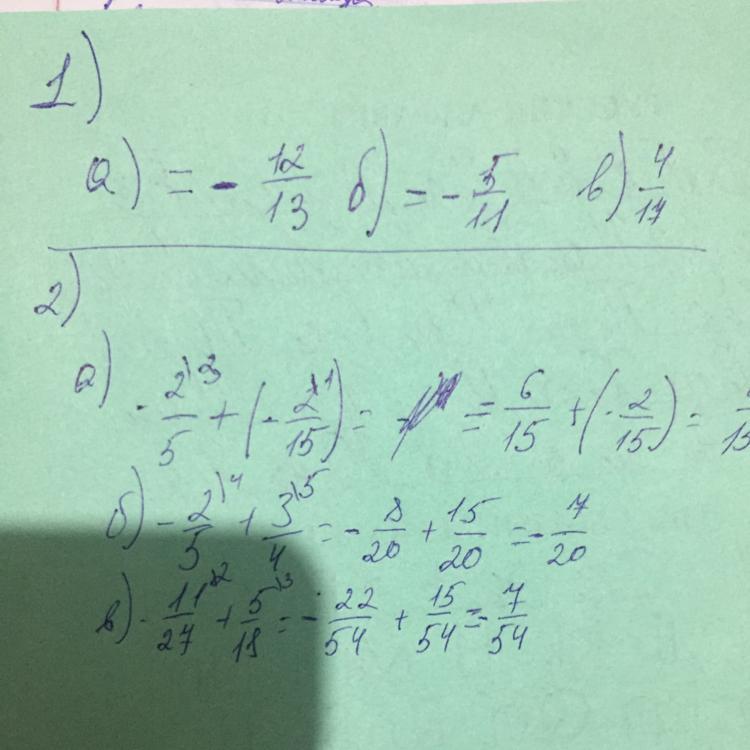 1)
а) = - 12/13 б) = - 5/11 в) 4/17
2)
а) - 2\3/5 + (- 2\1/15) = = 6/15 + (- 2/15) =
б) - 2\4/5 + 3\5/4 = - 8/20 + 15/20 = - 7/20
в) - 11\2/27 + 5\3/18 = - 22/54 + 15/54 = - 7/54